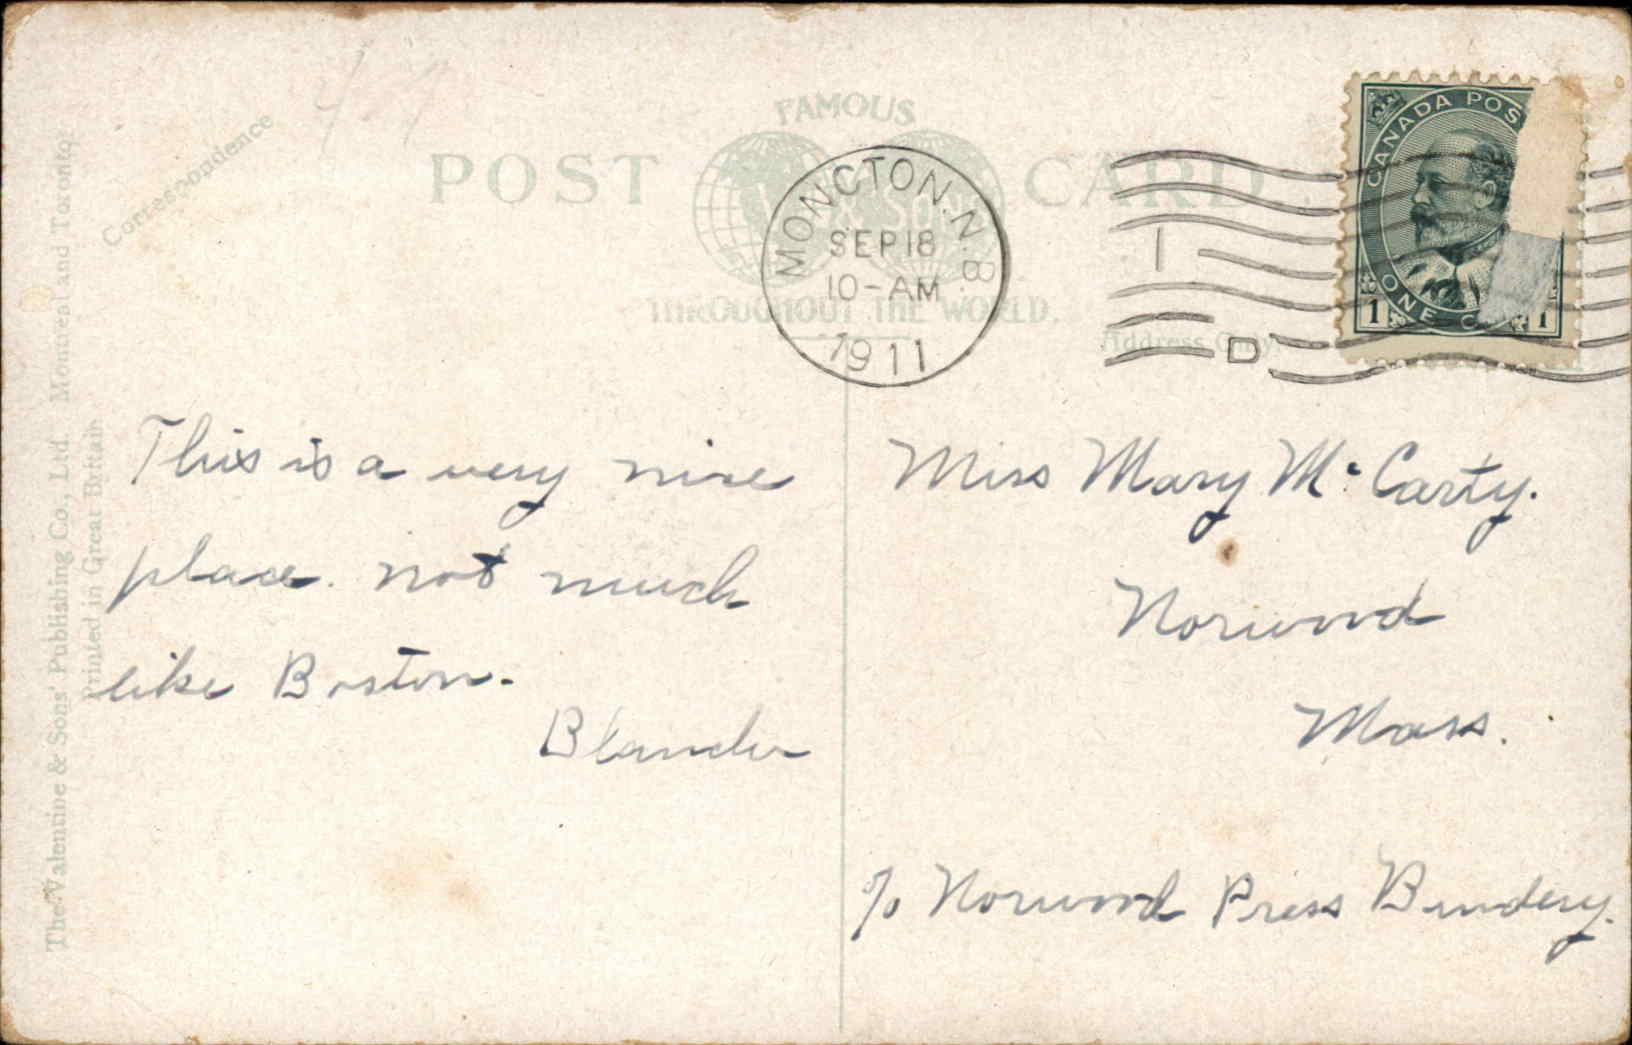 Correspondence
FAMOUS
POST CARD
& SONS
THROUGHOUT THE WORLD.
Address Only
MONCTON. N.B.
SEP 18
10-AM
1911
1
D
CANADA POS
ONE C
1 1
This is a very nice
place. not much
like Boston.
Blanche
Miss Mary Mc Carty.
Norwood
Mass.
c/o Norwood Press Bindery.
The Valentine & Sons' Publishing Co., Ltd. Montreal and Toronto
Printed in Great Britain